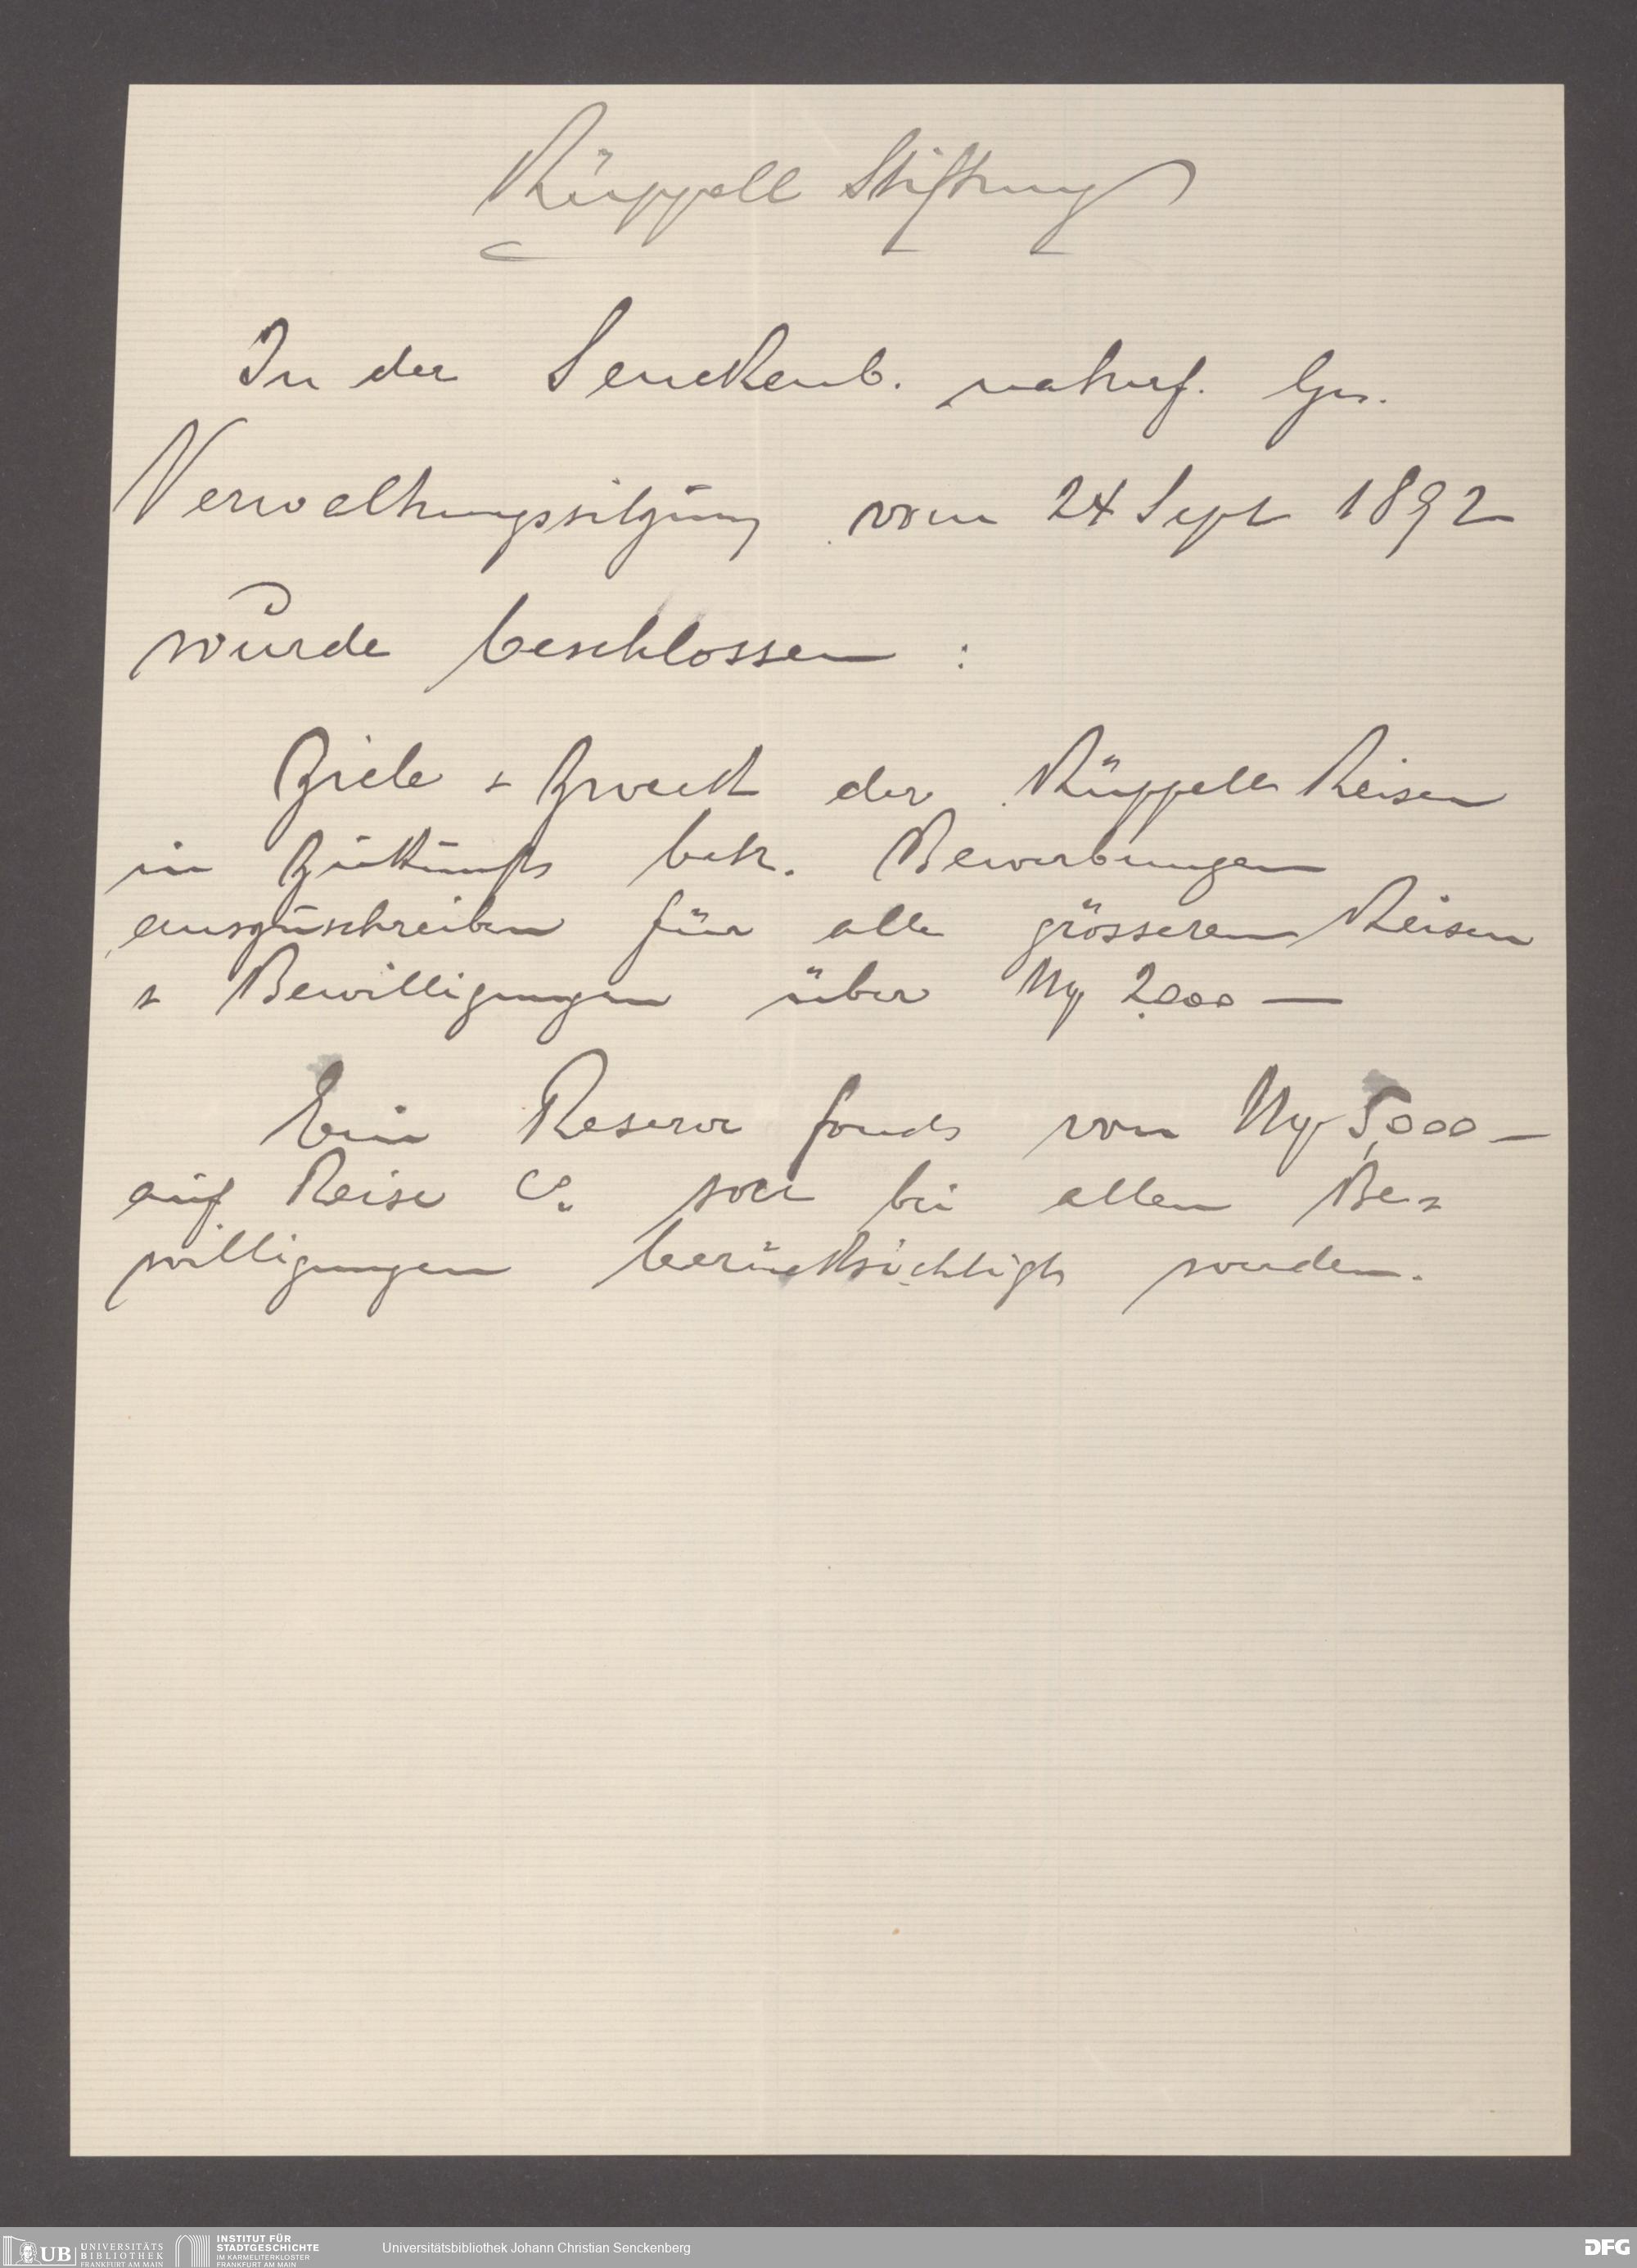 Rüppell Stiftung
In der Senckenb. naturf. Ges.
Verwaltungssitzung vom 24 Sept 1892
wurde beschlossen :
Ziele & Zweck der Rüppell Reisen
in Zukunft betr. Bewerbungen
auszuschreiben für alle grösseren Reisen
& Bewilligungen über Mk 2000 —
Ein Reserve fonds von Mk 5000 —
auf Reise Co. soll bei allen Be-
willigungen berücksichtigt werden.
UB UNIVERSITÄTS
BIBLIOTHEK
FRANKFURT AM MAIN
INSTITUT FÜR
STADTGESCHICHTE
IM KARMELITERKLOSTER
FRANKFURT AM MAIN
Universitätsbibliothek Johann Christian Senckenberg
DFG